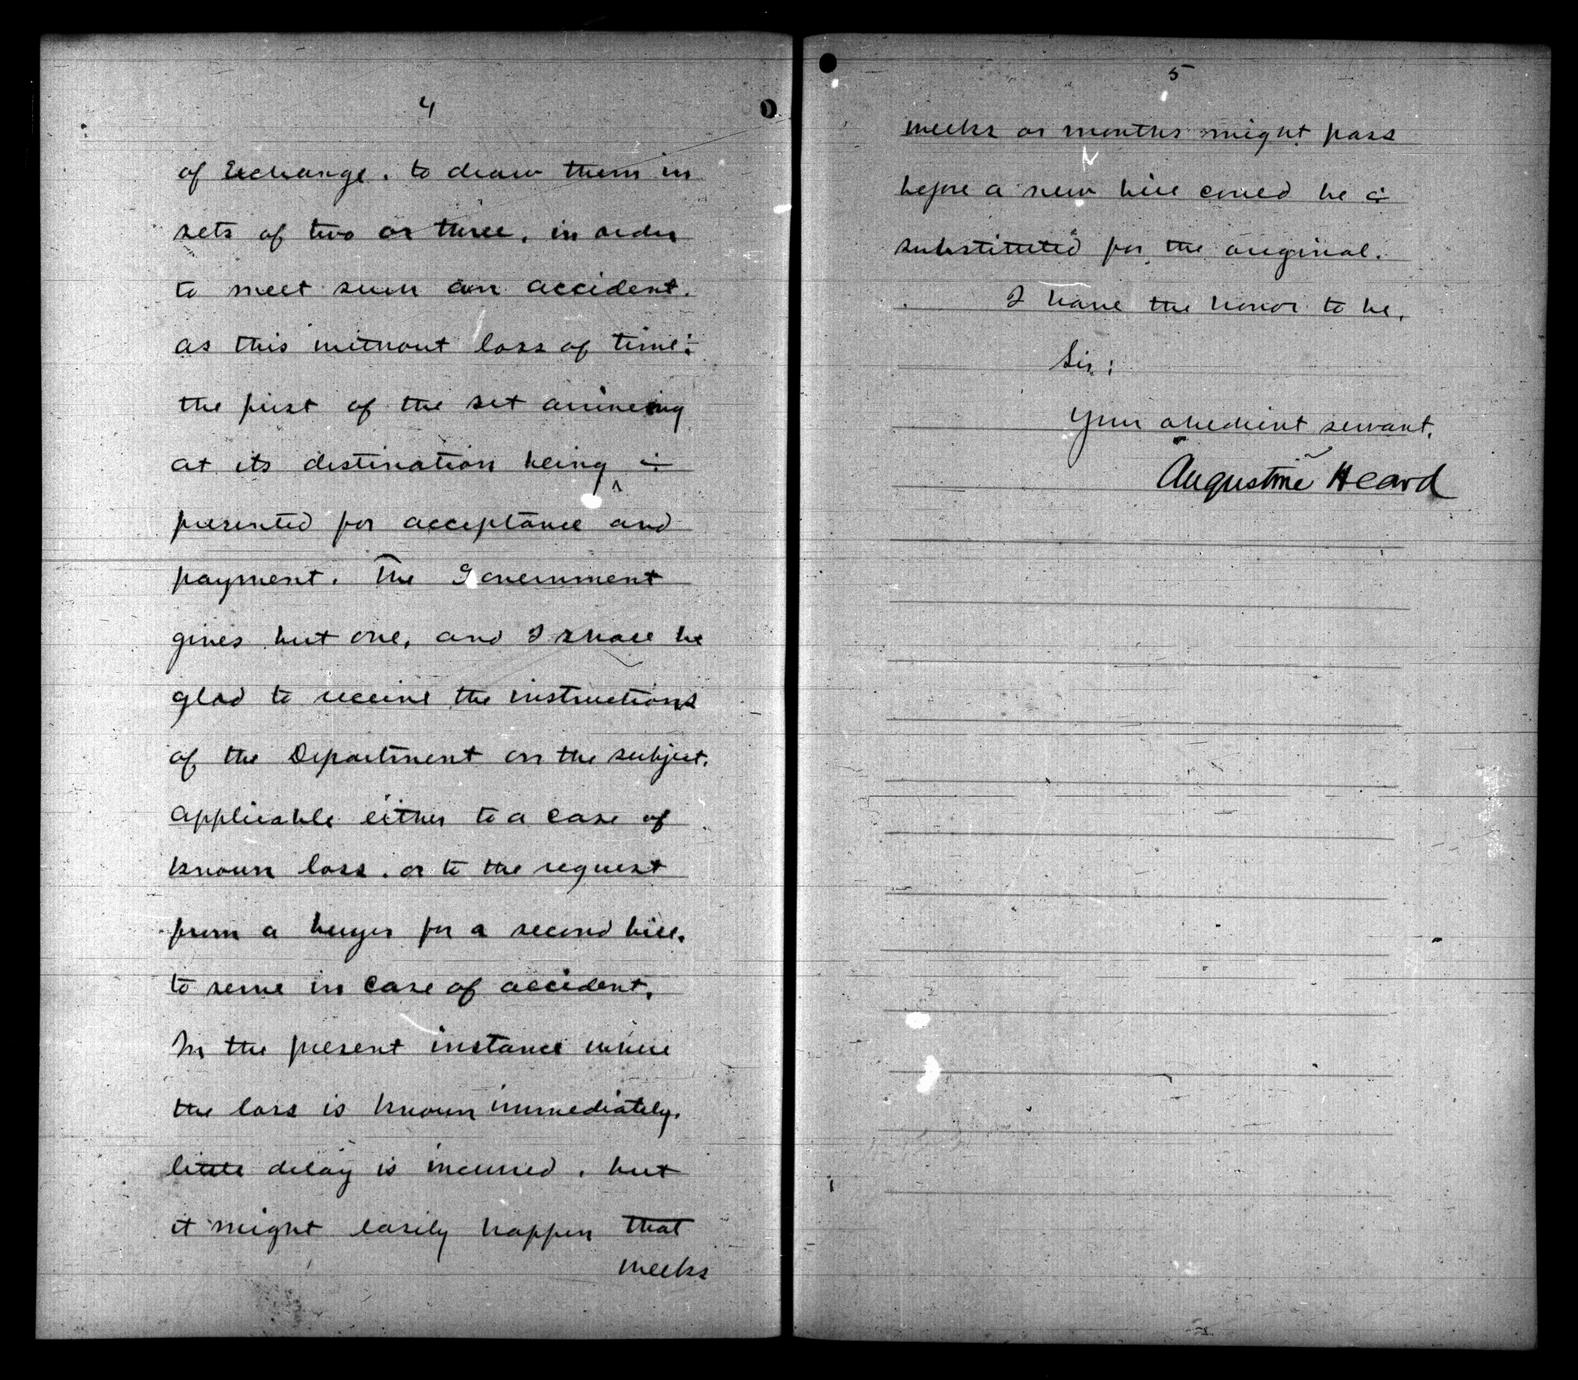 4
of Exchange, to draw them in
sets of two or three, in order
to meet such an accident,
as this without loss of time:
the first of the set arriving
at its destination being
presented for acceptance and
payment. The Government
gives but one, and I shall be
glad to receive the instructions
of the Department on the subject,
applicable either to a case of
known loss, or to the request
from a buyer for a second bill,
to serve in case of accident.
In the present instance where
the loss is known immediately,
little delay is incurred, but
it might easily happen that
weeks
5
weeks or months might pass
before a new bill could be
substituted for the original.
I have the honor to be,
Sir:
Your obedient servant,
Augustine Heard